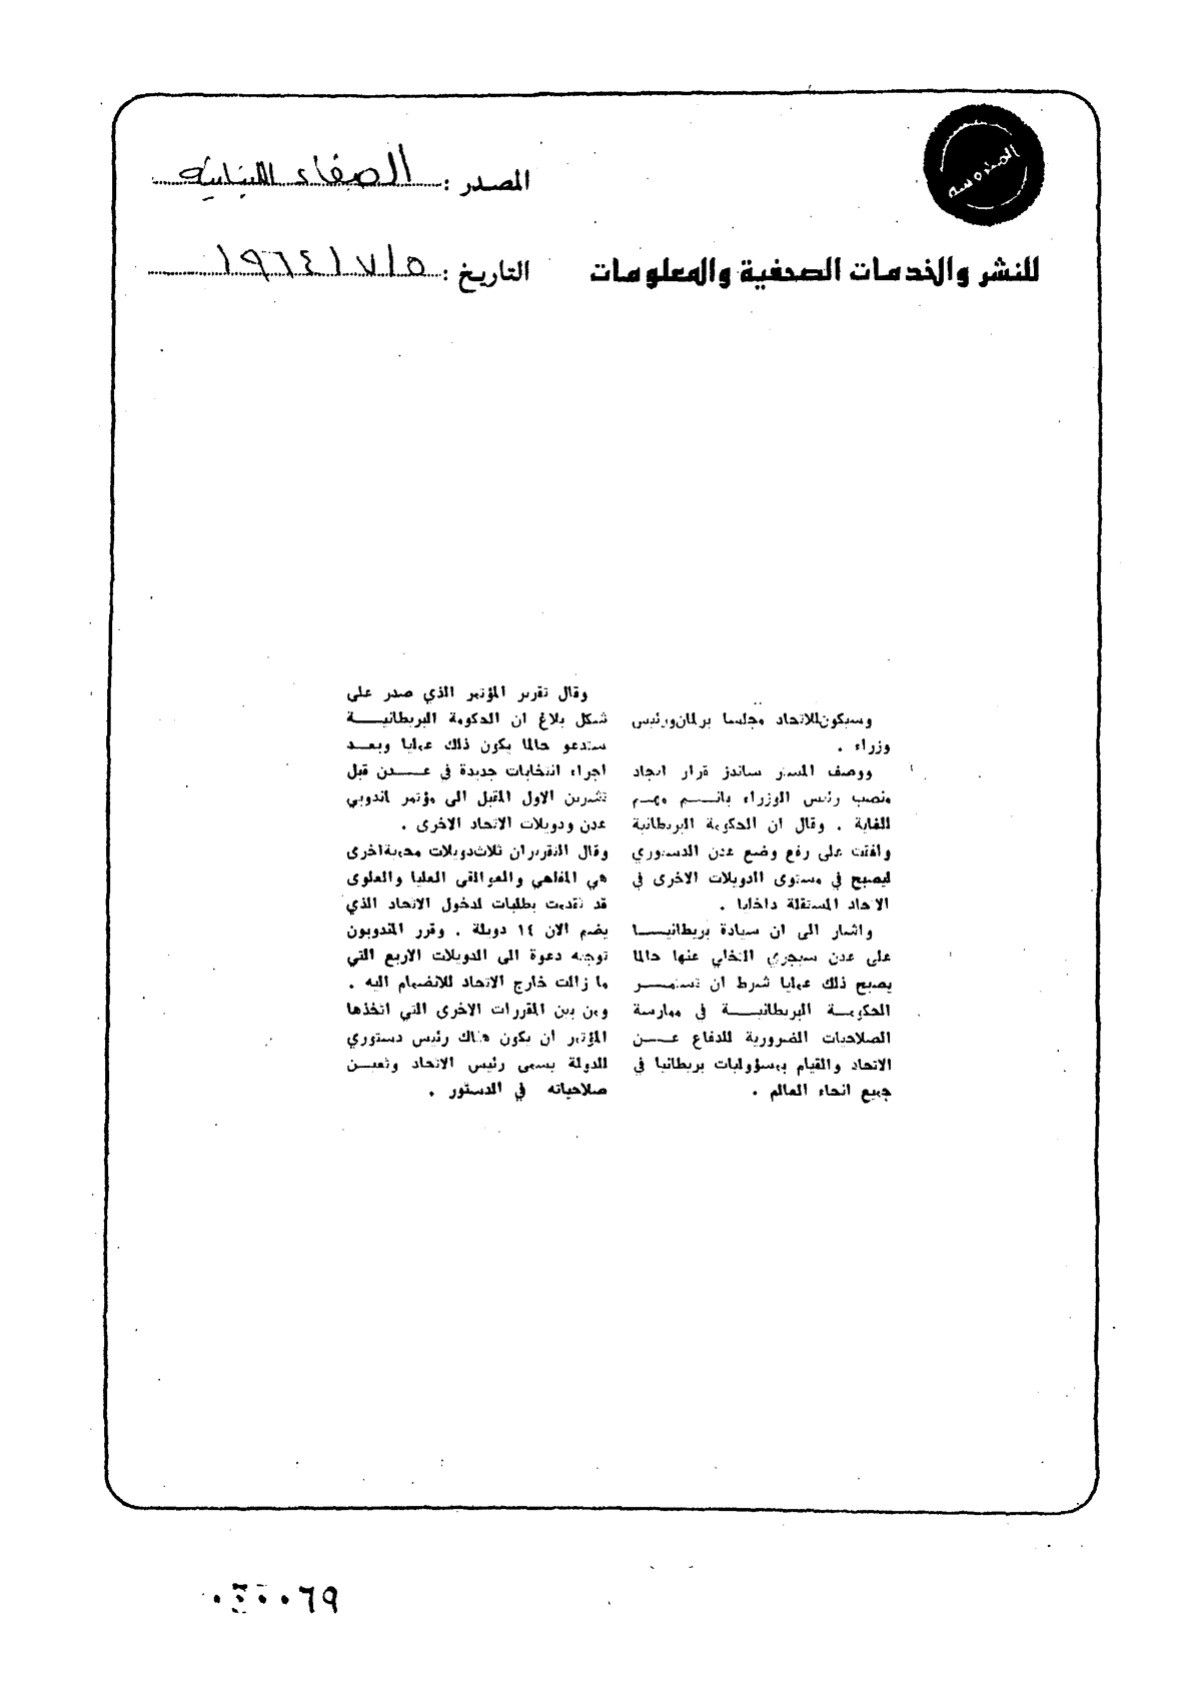 المصدر : الصفاء اللبنانية
للنشر والخدمات الصحفية والمعلومات
التاريخ : ١٩٦٤/٧/٥
وسيكون للاتحاد مجلسا برلمان ورئيس
وزراء .
ووصف المستر ساندز قرار ايجاد
منصب رئيس الوزراء بانـــه مهـم
للغاية . وقال ان الحكومة البريطانية
وافقت على رفع وضع عدن الدستوري
ليصبح في مستوى الدويلات الاخرى في
الاتحاد المستقلة داخليا .
واشار الى ان سيادة بريطانيـــا
على عدن سيجري التخلي عنها حالما
يصبح ذلك عمليا شرط ان تستمـــر
الحكومـــة البريطانيـــة في ممارسة
الصلاحيات الضرورية للدفاع عـــن
الاتحاد والقيام بمسؤوليات بريطانيا في
جميع انحاء العالم .
وقال تقرير المؤتمر الذي صدر على
شكل بلاغ ان الحكومة البريطانيـــة
ستدعو حالما يكون ذلك عمليا وبعـــد
اجراء انتخابات جديدة في عـــدن قبل
تشرين الاول المقبل الى مؤتمر لمندوبي
عدن ودويلات الاتحاد الاخرى .
وقال التقرير ان ثلاث دويلات محمية اخرى
هي المفلحي والعوالقي العليا والعلوي
قد تقدمت بطلبات لدخول الاتحاد الذي
يضم الان ١٤ دويلة . وقرر المندوبون
توجيه دعوة الى الدويلات الاربع التي
ما زالت خارج الاتحاد للانضمام اليه .
ومن بين المقررات الاخرى التي اتخذها
المؤتمر ان يكون هناك رئيس دستوري
للدولة يسمى رئيس الاتحاد وتعيـــن
صلاحياته في الدستور .